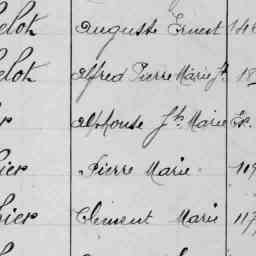 elot Auguste Ernest 146
elot Alfred Pierre Marie Jh 18
Alphouse Jh Marie Ex.
ier Pierre Marie 119
ier Clement Marie 117